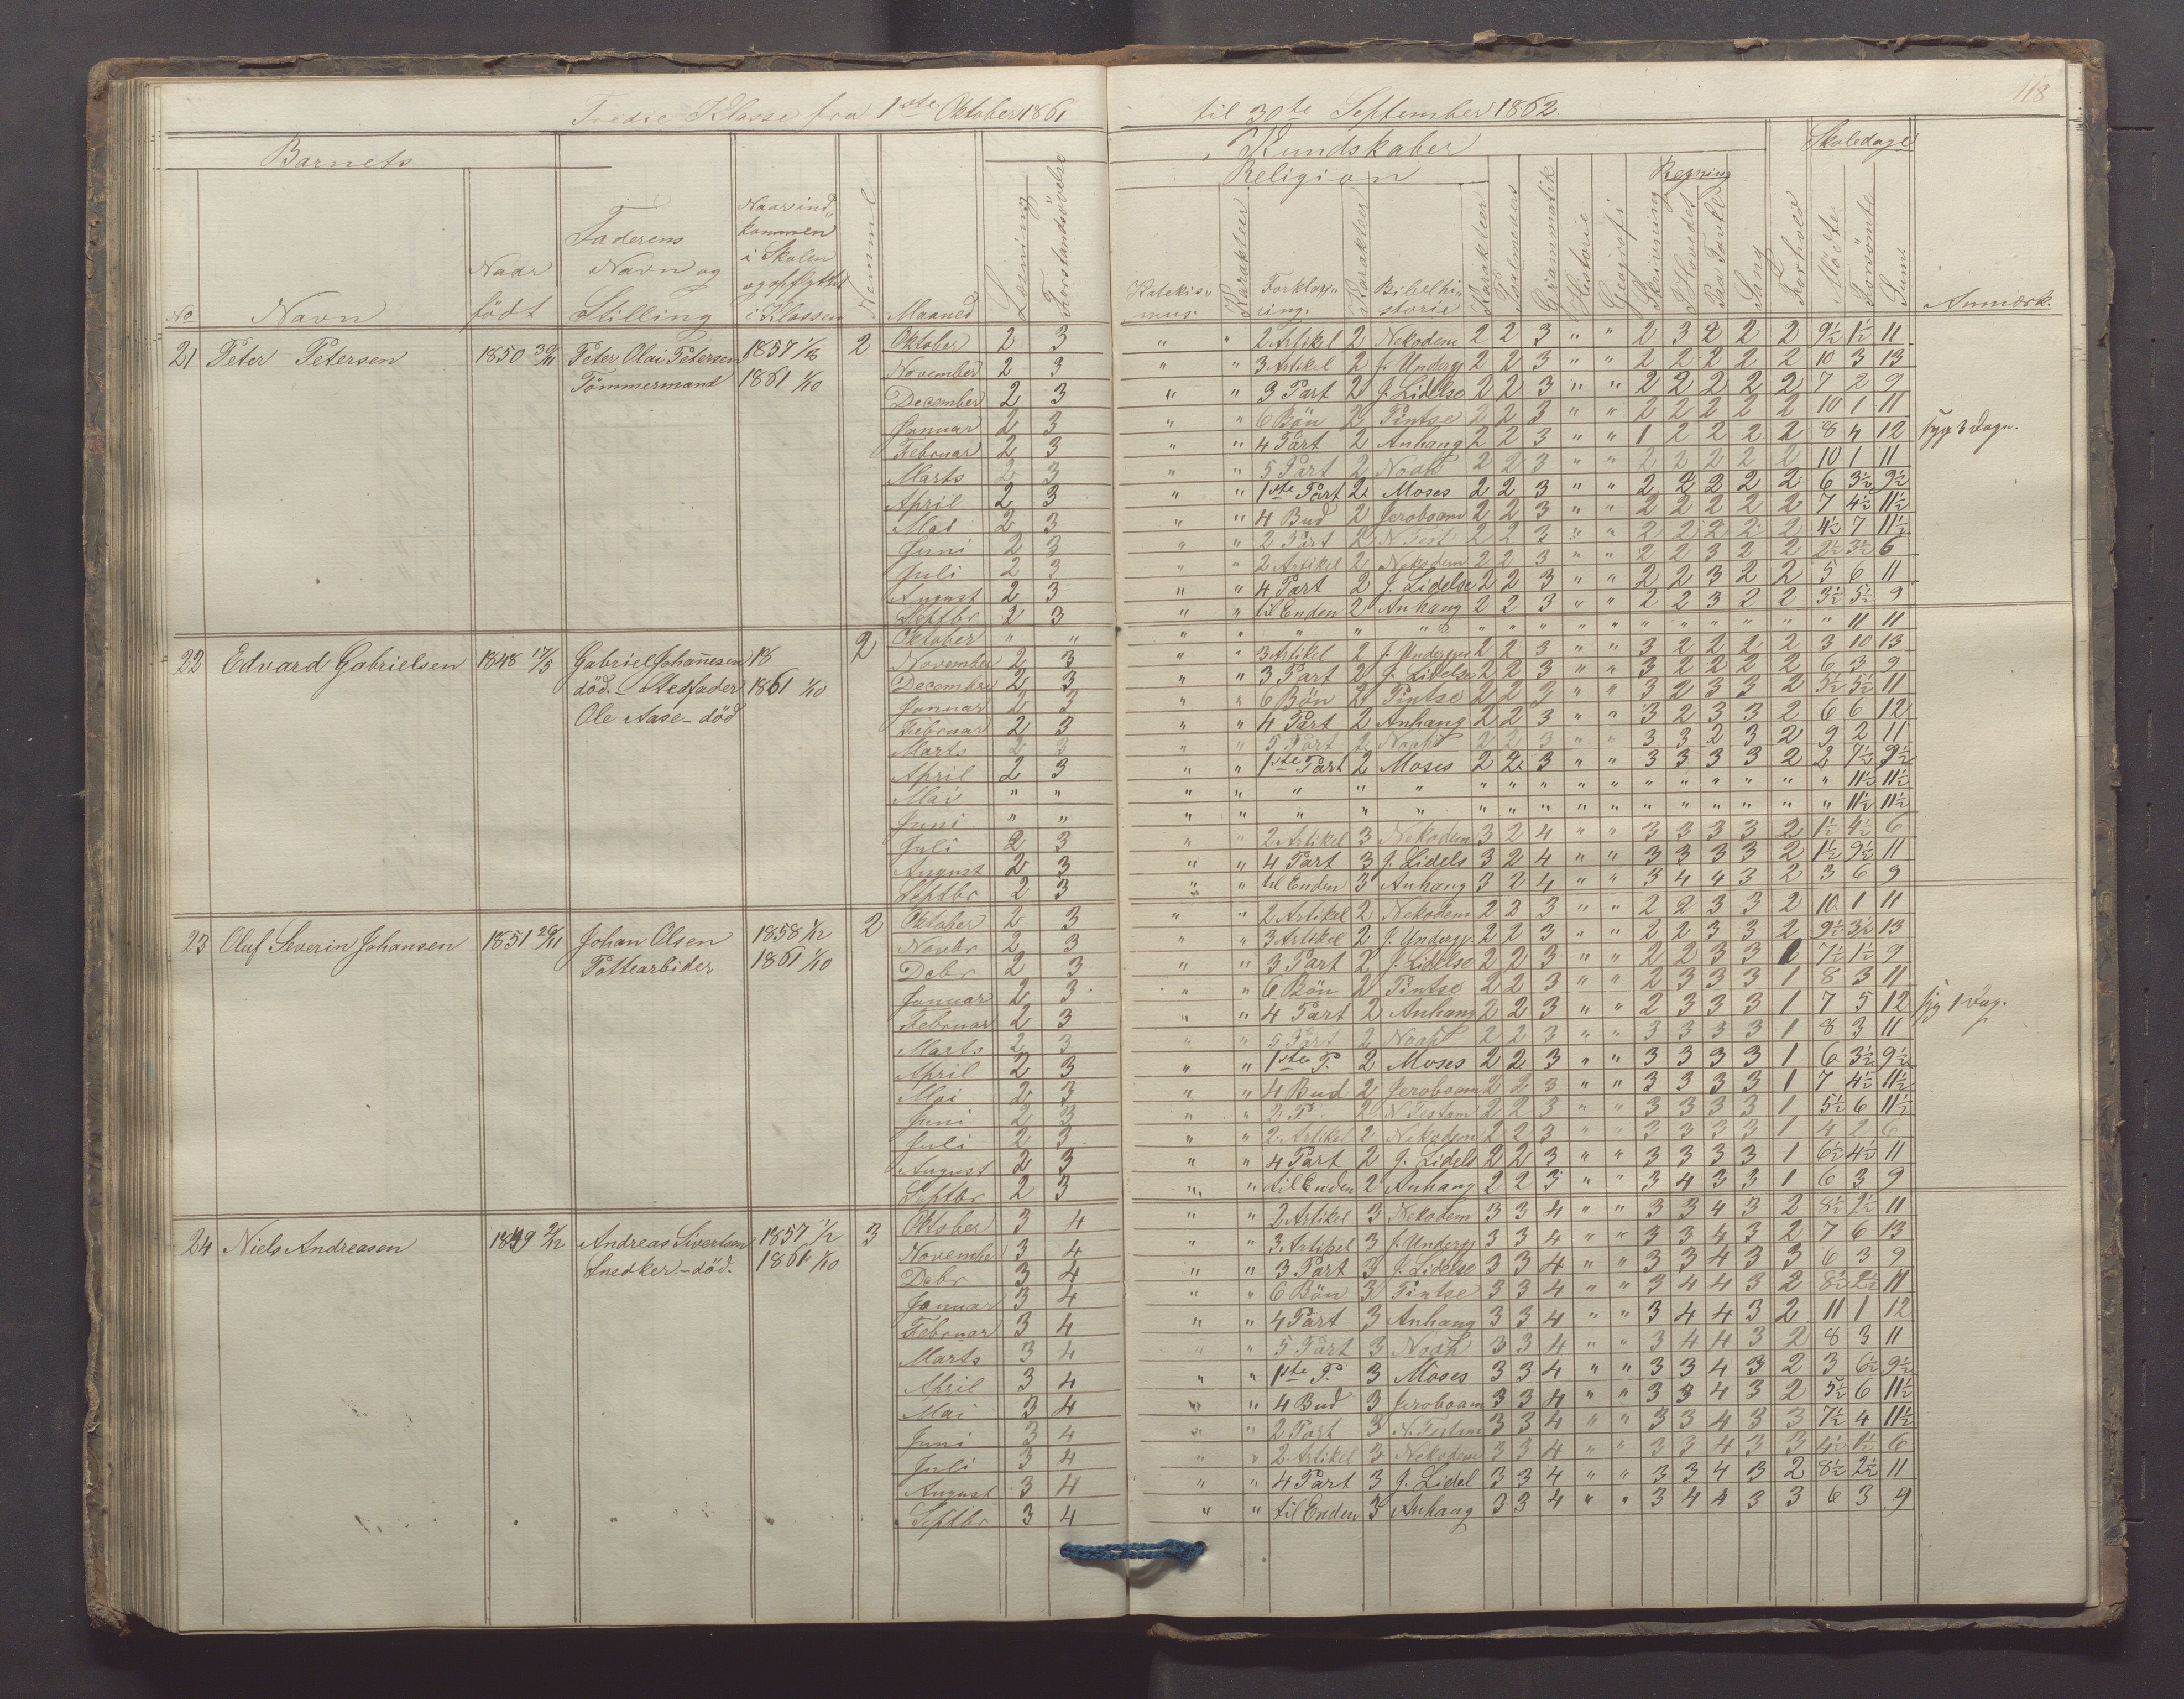 118
Tredie Klasse fra 1ste Oktober 1861 til 30te September 1862.
Barnets
Kundskaber
Skoledage
Religion
Regning
No Navn Naar født Faderens Navn og Stilling Naar ind„ kommen i Skolen og opflyttet i Klassen Nemme Maaned Læsning Forstandsövelse Katekis„ mus. Karakteer Forklar„ ing. Karakter Bibelhi„ storie Karakteer Psalmevers Grammatik Historie Geografi Skrivning I Hovedet Paa Tavle Sang Forhold Mödte Forsömte Sum. Anmærk.
21 Peter Petersen 1850 30/11 Peter Olai Petersen 1857 2 Oktober 2 3 " " 2 Artikel 2 Nekodem 2 2 3 " " 2 3 2 2 2 9½ 1½ 11
Tömmermand 1861 1/10 November 2 3 " " 3 Artikel 2 J. Undergj. 2 2 3 " " 2 2 2 2 2 10 3 13
December 2 3 " " 3 Part 2 J. Lidelse 2 2 3 " " 2 2 2 2 2 7 2 9
Januar 2 3 " " 6 Bön 2 Pintse 2 2 3 " " 2 2 2 2 2 10 1 11
Februar 2 3 " " 4 Part 2 Anhang 2 2 3 " " 1 2 2 2 2 8 4 12 syg 3 Dage.
Marts 2 3 " " 5 Part 2 Noah 2 2 3 " " 2 2 2 2 2 10 1 11
April 2 3 " " 1ste Part 2 Moses 2 2 3 " " 2 2 2 2 2 6 3½ 9½
Mai 2 3 " " 4 Bud 2 Jeroboam 2 2 3 " " 2 2 2 2 2 7 4½ 11½
Juni 2 3 " " 2 Part 2 N. Test 2 2 3 " " 2 2 2 2 2 4½ 7 11½
Juli 2 3 " " 2 Artikel 2 Nekodem 2 2 3 " " 2 2 3 2 2 2½ 3½ 6
August 2 3 " " 4 Part 2 J. Lidelse 2 2 3 " " 2 2 3 2 2 5 6 11
Septbr 2 3 " " til Enden 2 Anhang 2 2 3 " " 2 2 3 2 2 3½ 5½ 9
22 Edvard Gabrielsen 1848 17/5 Gabriel Johannesen 18 2 Oktober " " " " " " " " " " " " " " " " " " 11 11
död. – Stedfader 1861 1/10 November 2 3 " " 3 Artikel 2 J. Undergje 2 2 3 " " 3 2 2 2 2 3 10 13
Ole Aase – död December 2 3 " " 3 Part 2 J. Lidelse 2 2 3 " " 3 2 2 2 2 6 3 9
Januar 2 3 " " 6 Bön 2 Pintse 2 2 3 " " 3 2 3 3 2 5½ 5½ 11
Februar 2 3 " " 4 Part 2 Anhang 2 2 3 " " 3 2 3 3 2 6 6 12
Marts 2 3 " " 5 Part 2 Noah 2 2 3 " " 3 3 2 3 2 9 2 11
April 2 3 " " 1ste Part 2 Moses 2 2 3 " " 3 3 3 3 2 2 7½ 9½
Mai " " " " " " " " " " " " " " " " " " 11½ 11½
Juni " " " " " " " " " " " " " " " " " " 11½ 11½
Juli 2 3 " " 2 Artikel 3 Nekodem 3 2 4 " " 3 3 3 3 2 1½ 4½ 6
August 2 3 " " 4 Part 3 J. Lidels 3 2 4 " " 3 3 3 3 2 1½ 9½ 11
Septbr 2 3 " " til Enden 3 Anhang 3 2 4 " " 3 4 4 3 2 3 6 9
23 Oluf Severin Johansen 1851 Johan Olsen 1858 1/12 2 Oktober 2 3 " " 2 Artikel 2 Nekodem 2 2 3 " " 2 2 3 3 2 10 1 11
Pottearbider 1861 1/10 Novbr 2 3 " " 3 Artikel 2 J. Undergj. 2 2 3 " " 2 2 3 3 2 9½ 3½ 13
Debr 2 3 " " 3 Part 2 J. Lidelse 2 2 3 " " 2 2 3 3 1 7½ 1½ 9
Januar 2 3 " " 6 Bön 2 Pintse 2 2 3 " " 2 3 3 3 1 8 3 11
Februar 2 3 " " 4 Part 2 Anhang 2 2 3 " " 2 3 3 3 1 7 5 12 syg 1 Dag.
Marts 2 3 " " 5 Part 2 Noah 2 2 3 " " 3 3 3 3 1 8 3 11
April 2 3 " " 1ste P. 2 Moses 2 2 3 " " 3 3 3 3 1 6 3½ 9½
Mai 2 3 " " 4 Bud 2 Jeroboam 2 2 3 " " 3 3 3 3 1 7 4½ 11½
Juni 2 3 " " 2 P. 2 N Testam 2 2 3 " " 3 3 3 3 1 5½ 6 11½
Juli 2 3 " " 2 Artikel 2 Nekodem 2 2 3 " " 3 3 3 3 1 4 2 6
August 2 3 " " 4 Part 2 J. Lidels 2 2 3 " " 3 3 3 3 1 6½ 4½ 11
Septbr 2 3 " " til Enden 2 Anhang 2 2 3 " " 3 4 3 3 1 6 3 9
24 Niels Andreasen 1849 Andreas Sivertsen 1857 3 Oktober 3 4 " " 2 Artikel 3 Nekodem 3 3 4 " " 3 3 4 3 2 8½ 2½ 11
Snedker – död. 1861 1/10 Novembe 3 4 " " 3 Artikel 3 J. Undergj 3 3 4 " " 3 3 4 3 2 7 6 13
Debr 3 4 " " 3 Part 3 J. Lidelse 3 3 4 " " 3 3 4 3 3 6 3 9
Januar 3 4 " " 6 Bön 3 Pintse 3 3 4 " " 3 4 4 3 2 8½ 2½ 11
Februar 3 4 " " 4 Part 3 Anhang 3 3 4 " " 3 4 4 3 2 11 1 12
Marts 3 4 " " 5 Part 3 Noah 3 3 4 " " 3 4 4 3 2 8 3 11
April 3 4 " " 1ste P. 3 Moses 3 3 4 " " 3 3 4 3 2 3 6½ 9½
Mai 3 4 " " 4 Bud 3 Jeroboam 3 3 4 " " 3 3 4 3 2 5½ 6 11½
Juni 3 4 " " 2 Part 3 N. Testam 3 3 4 " " 3 3 4 3 3 7½ 4 11½
Juli 3 4 " " 2 Artikel 3 Nekodem 3 3 4 " " 3 3 4 3 3 4½ 1½ 6
August 3 4 " " 4 Part 3 J. Lidel 3 3 4 " " 3 3 4 3 2 8½ 2½ 11
Septbr 3 4 " " til Enden 3 Anhang 3 3 4 " " 3 4 4 3 3 6 3 9